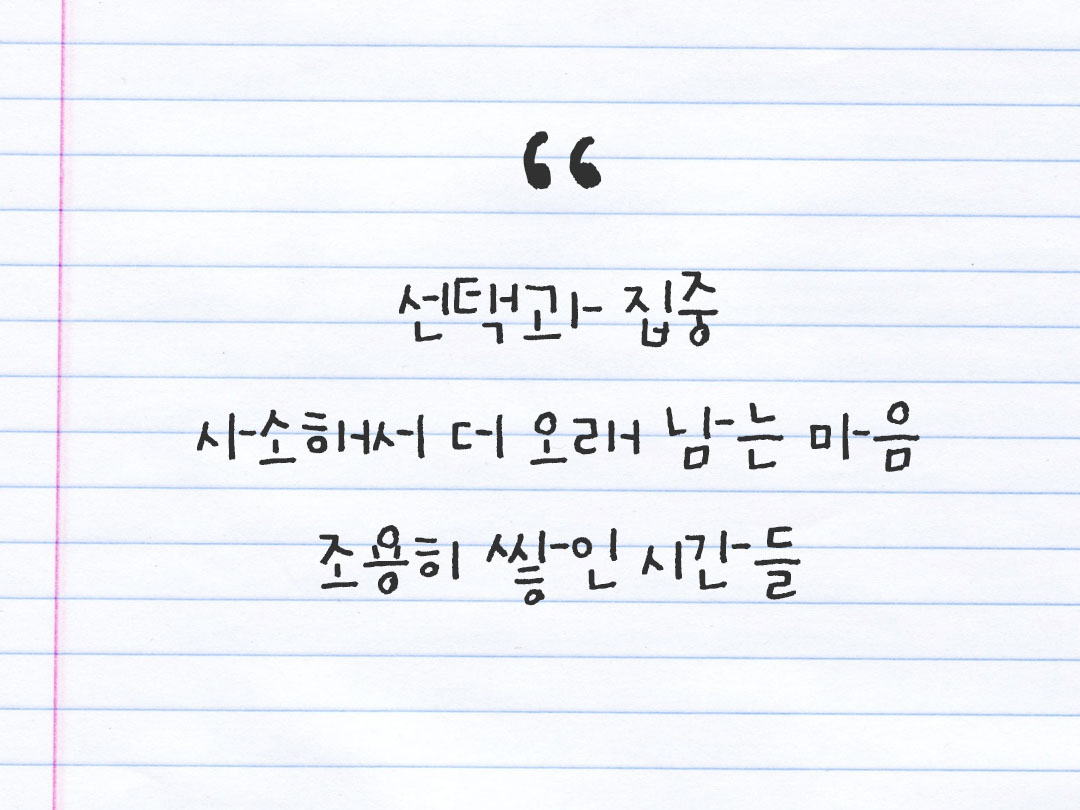 “
선택과 집중
사소해서 더 오래 남는 마음
조용히 쌓인 시간들